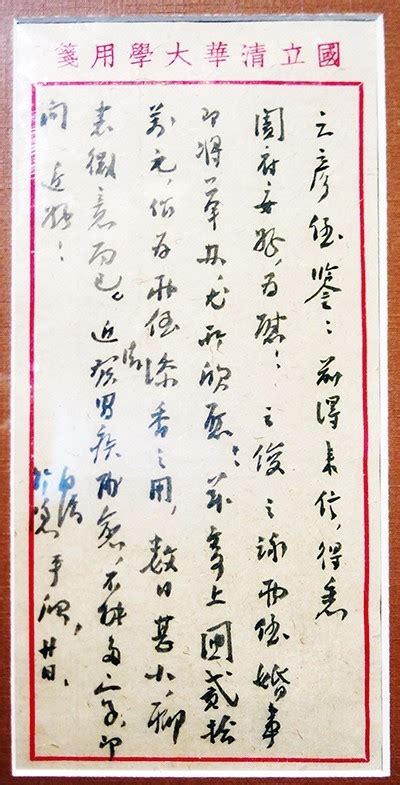 國立清華大學用箋
之彥侄鑒：前得來信，得悉
闔府安好，為慰！之俊之詠兩侄婚事
即將舉辦，尤所欣慰！茲寄上國貳拾
萬元，作為兩侄添香之用，數目甚小，聊
表微意而已。近發胃疾，不能多寫，即
問 近好！
自清 手啟，廿日、